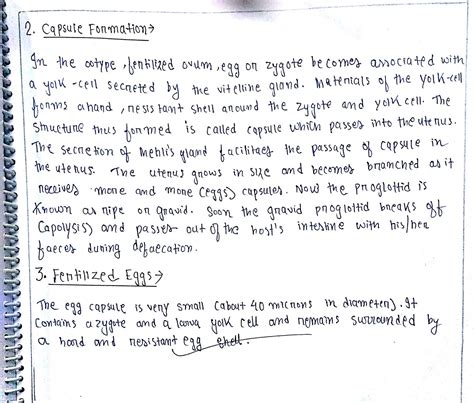 2. Capsule Formation→
In the ootype, fentilized ovum, egg on zygote becomes associated with
a yolk-cell secreted by the vitelline gland. Materials of the yolk-cell
forms a hand, nesistant shell anound the zygote and yolk cell. The
Structure thus formed is called capsule which passes into the utenus.
The secnetion of Mehli's gland facilitaes the passage of capsule in
the utenus. The utenus gnows in size and becomes branched as it
receives mone and mone (eggs) capsules. Now the pnoglottid is
known as nipe on gnavid. Soon the gnavid pnoglottid bneaks off
Capolysis) and passes out of the host's intestine with his/hen
faeces duning defaecation.
3. Fentilized Eggs→
The egg capsule is very small (about 40 micnons in diameten). It
Contains a zygote and a lanva yolk cell and nemains surrounded by
a hand and nesistant egg shell.